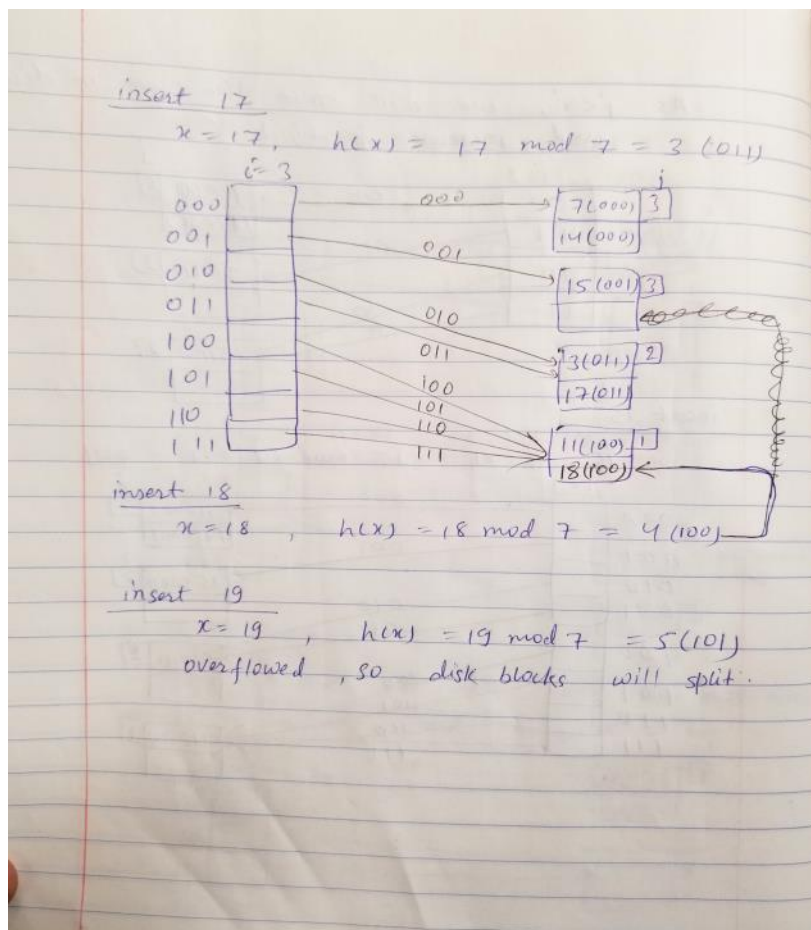 insert 17
x = 17, h(x) = 17 mod 7 = 3 (011)
i = 3
j
000 000 7(000) 3
14(000)
001 001
15(001) 3
010
011 010
011 3(011) 2
17(011)
100 100
101 101
110 110
111 111
11(100) 1
18(100)
insert 18
x = 18, h(x) = 18 mod 7 = 4 (100)
insert 19
x = 19, h(x) = 19 mod 7 = 5 (101)
overflowed, so disk blocks will split.